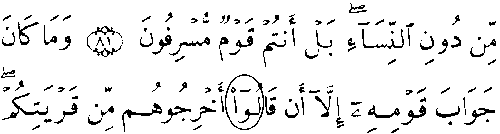 مِّن دُونِ ٱلنِّسَآءِۚ بَلْ أَنتُمْ قَوْمٌ مُّسْرِفُونَ ٨١ وَمَا كَانَ
جَوَابَ قَوْمِهِۦٓ إِلَّآ أَن قَالُوٓا۟ أَخْرِجُوهُم مِّن قَرْيَتِكُمْۖ